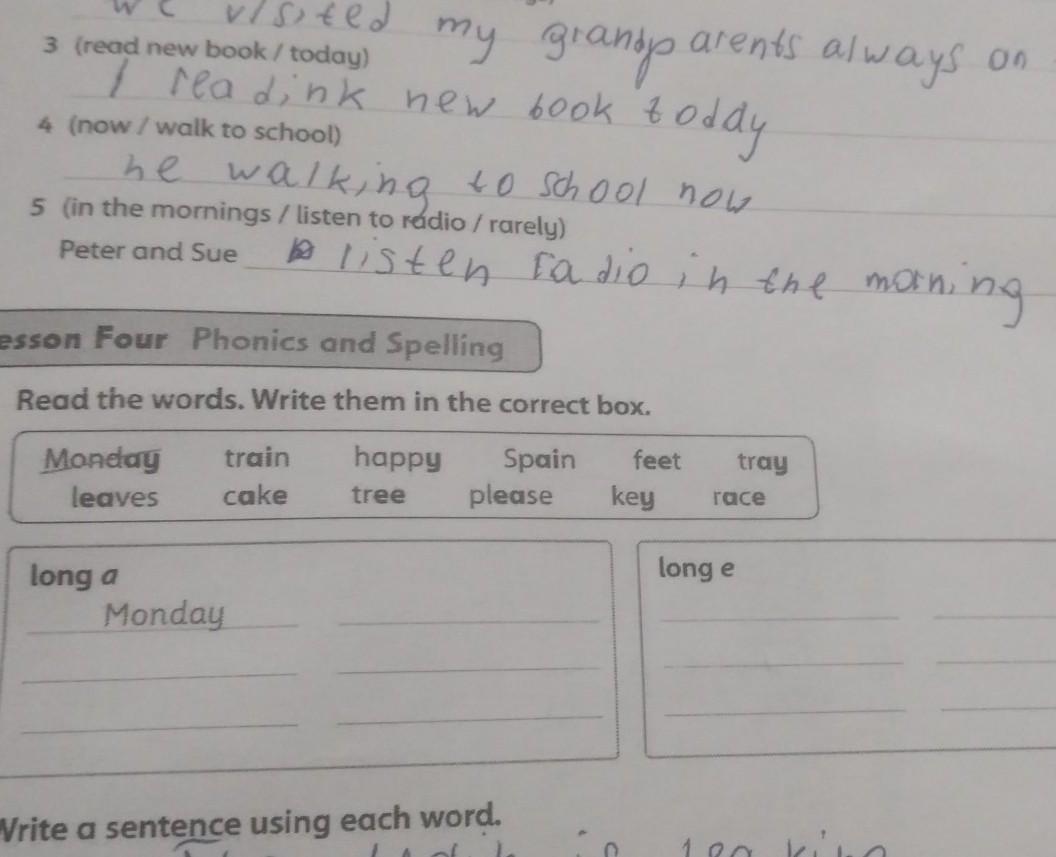 we visited my grandparents always on
3 (read new book / today)
I readink new book today
4 (now / walk to school)
he walking to school now
5 (in the mornings / listen to radio / rarely)
Peter and Sue listen radio in the morning
esson Four Phonics and Spelling
Read the words. Write them in the correct box.
Monday train happy Spain feet tray
leaves cake tree please key race
long a long e
Monday
Write a sentence using each word.